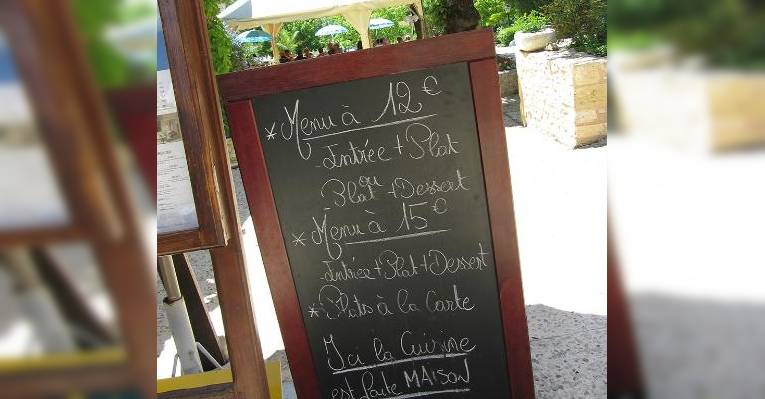 * Menu à 12 €
Entrée + Plat
ou
Plat + Dessert
* Menu à 15 €
Entrée + Plat + Dessert
* Plats à la Carte
Ici la Cuisine
est faite MAISON